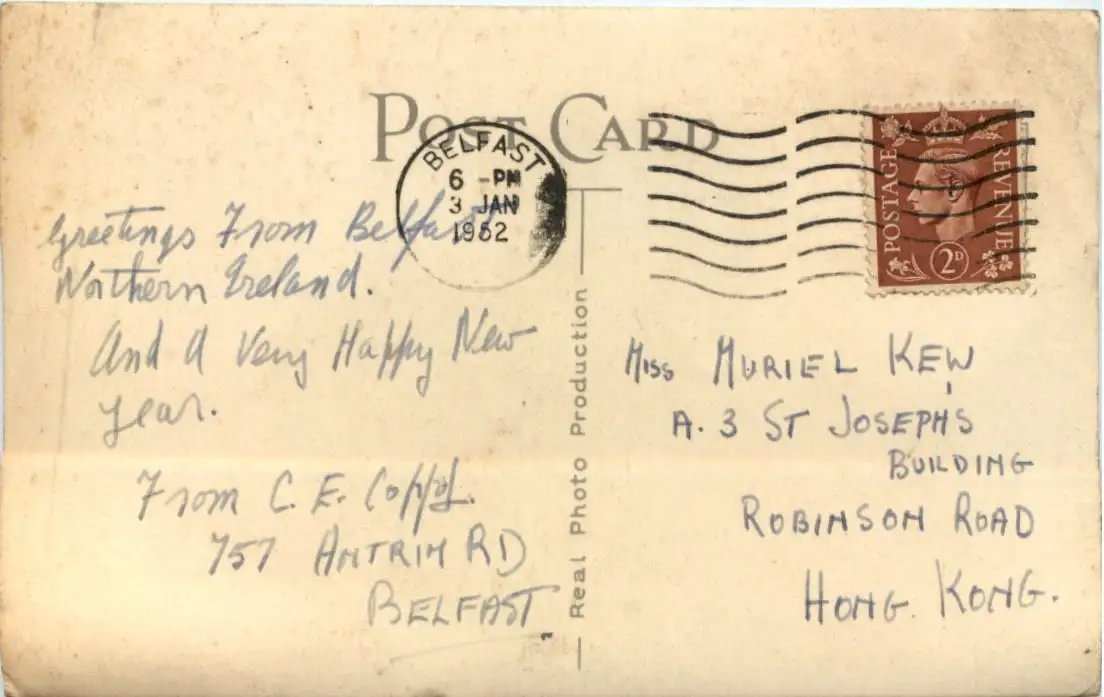 POST CARD
BELFAST
6 - PM
3 JAN
1952
POSTAGE REVENUE
2D
Greetings From Belfast
Northern Ireland.
And A Very Happy New
year.
From C. E.
757 ANTRIM RD
BELFAST
Real Photo Production
MISS MURIEL KEW
A. 3 ST JOSEPH'S
BUILDING
ROBINSON ROAD
HONG KONG.